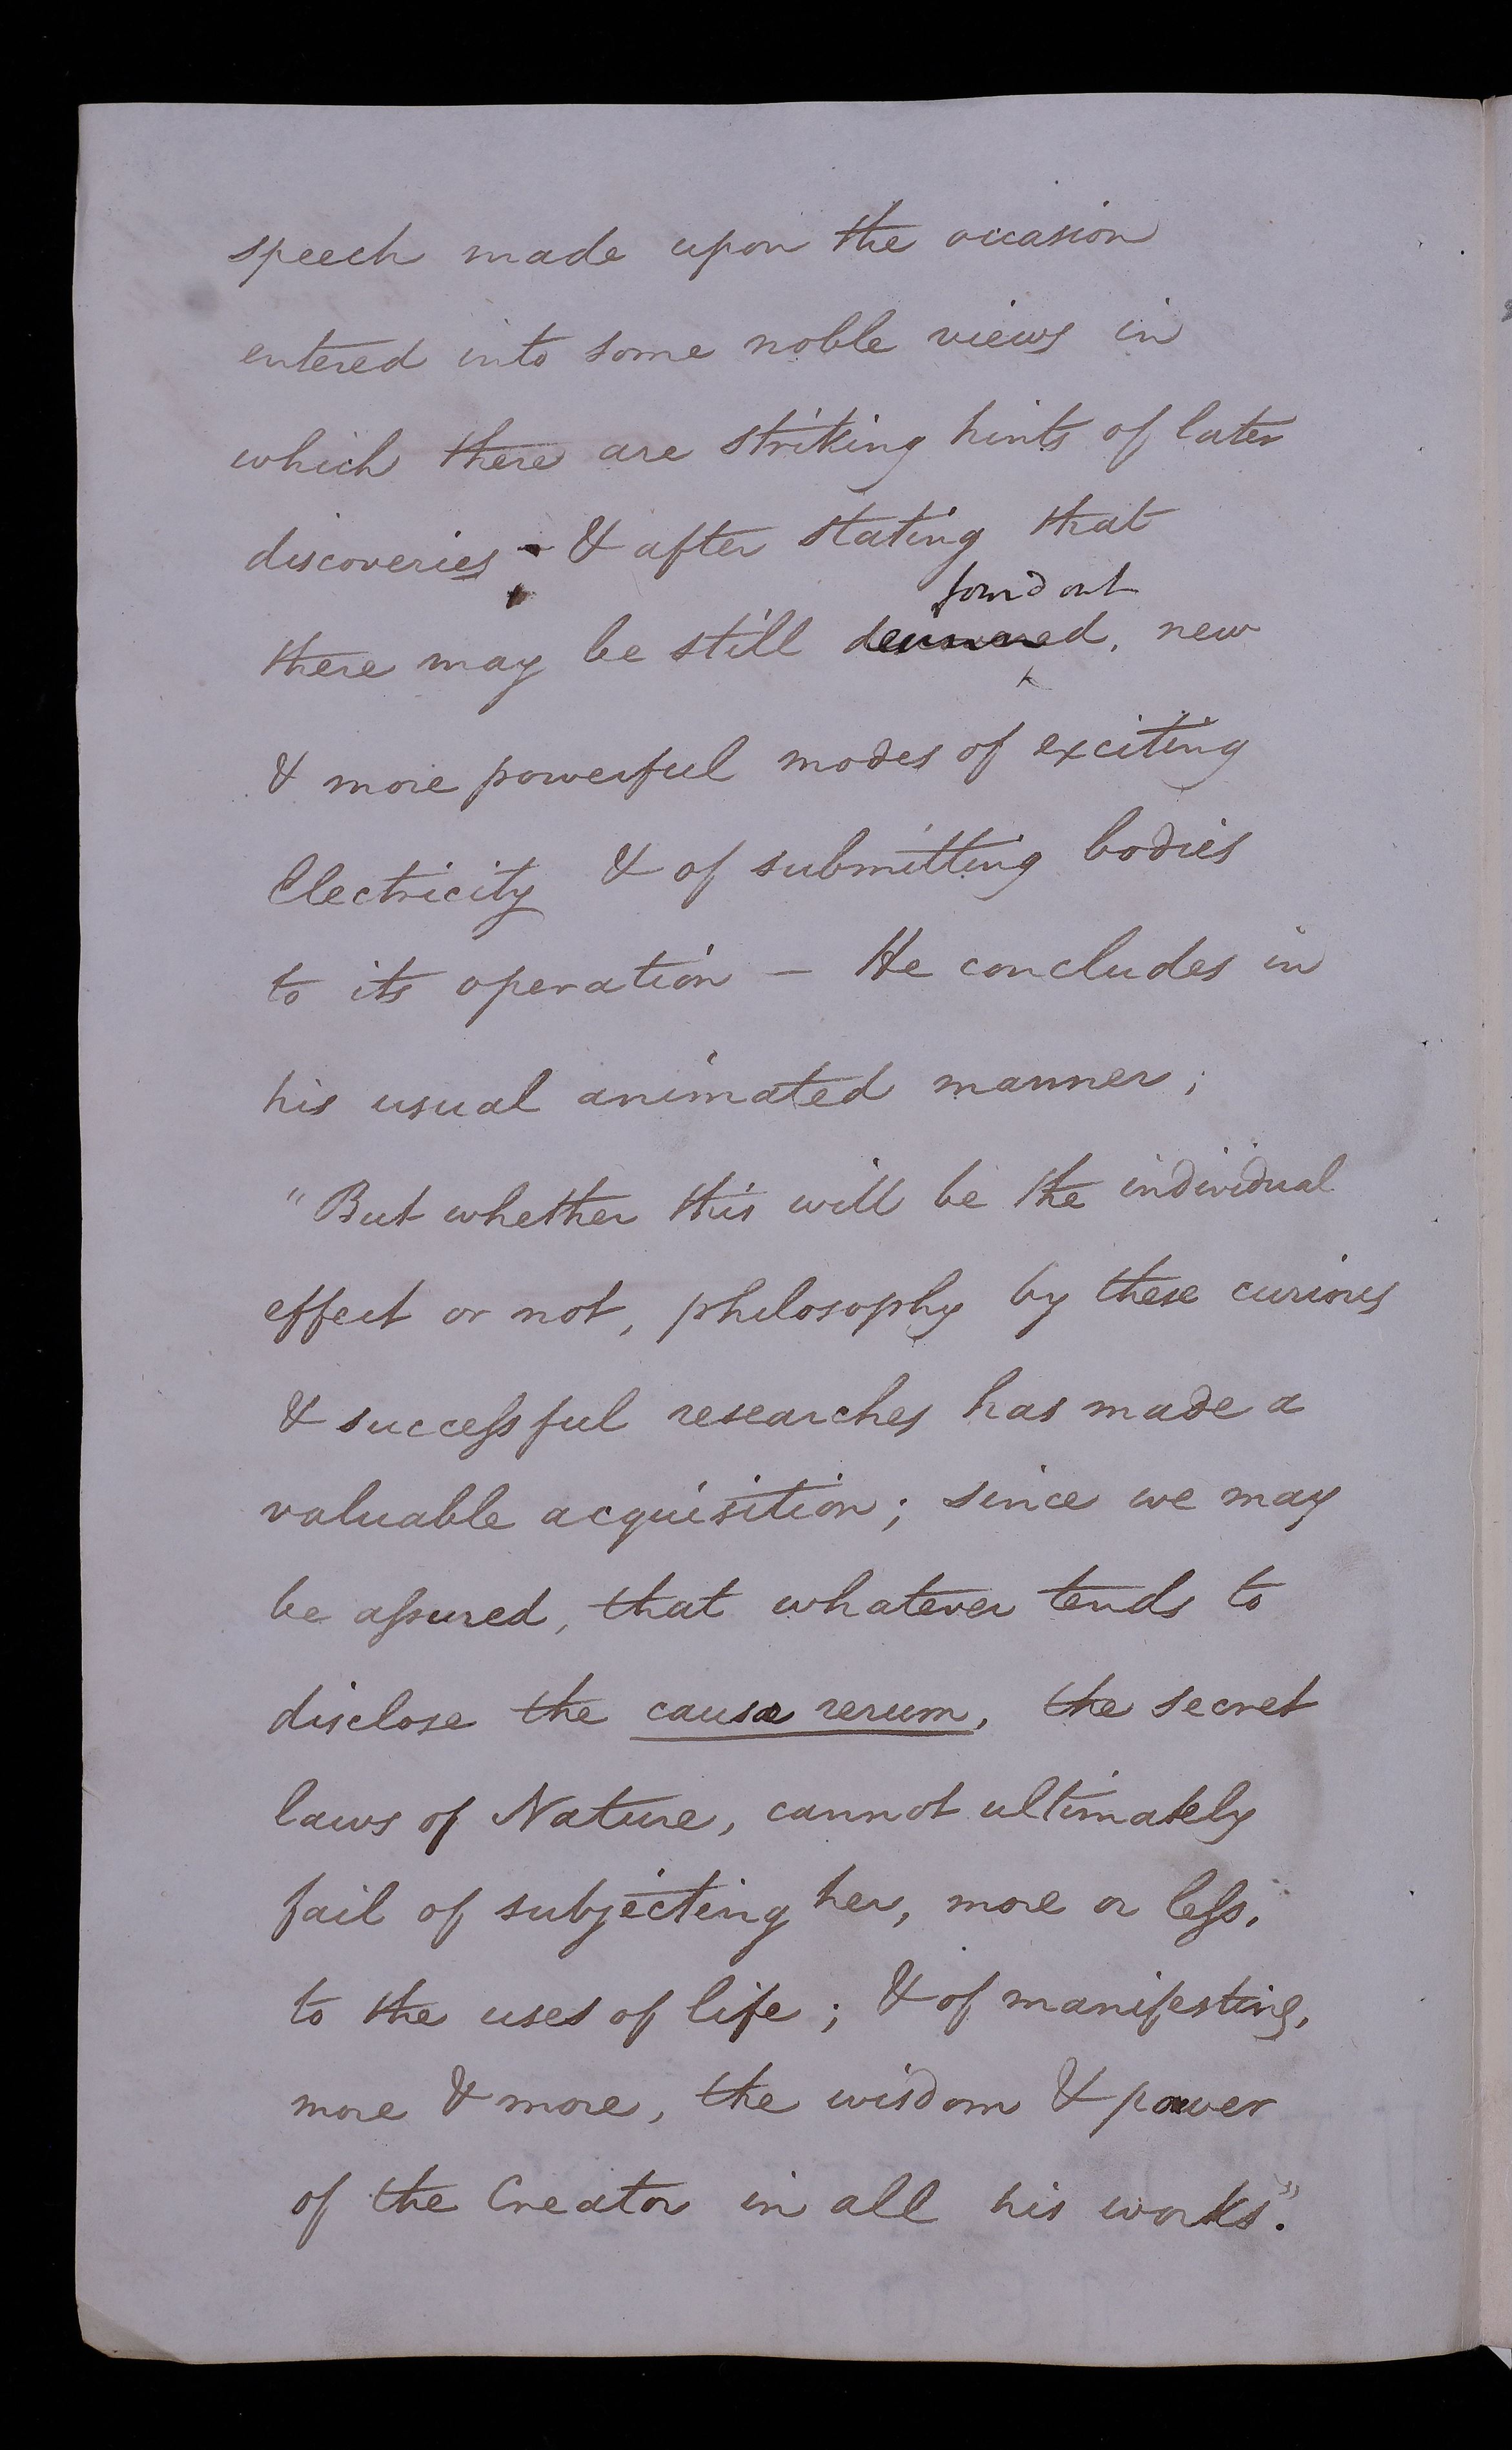 speech made upon the occasion
entered into some noble views in
which there are striking hints of later
discoveries - & after stating that
found out
there may be still , new
& more powerful modes of exciting
Electricity & of submitting bodies
to its operation – He concludes in
his usual animated manner;
"But whether this will be the individual
effect or not, philosophy by these curious
& succeſsful researches has made a
valuable acquisition; since we may
be aſsured, that whatever tends to
disclose the causæ rerum, the secret
laws of Nature, cannot ultimately
fail of subjecting her, more or leſs,
to the uses of life; & of manifesting,
more & more, the wisdom & power
of the Creator in all his works."